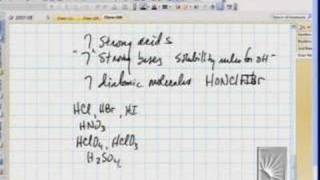 7 Strong acids
"7" Strong bases solubility rules for OH⁻
7 diatomic molecules HONClFIBr
HCl, HBr, HI
HNO₃
HClO₄, HClO₃
H₂SO₄